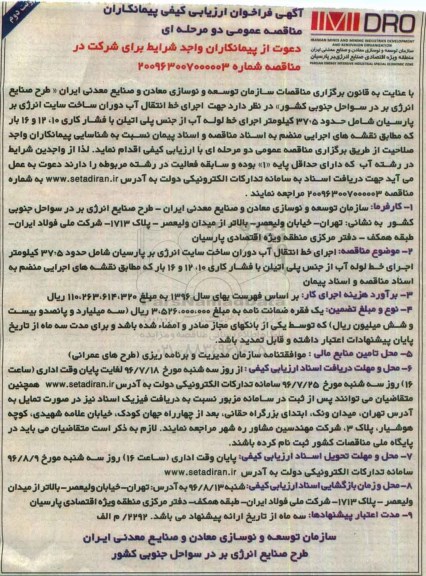 آگهی فراخوان ارزیابی کیفی پیمانکاران
مناقصه عمومی دو مرحله ای
دعوت از پیمانکاران واجد شرایط برای شرکت در
مناقصه شماره ۲۰۰۹۶۳۰۰۷۰۰۰۰۰۳
IMIDRO
IRANIAN MINES AND MINING INDUSTRIES DEVELOPMENT
AND RENOVATION ORGANIZATION
سازمان توسعه و نوسازی معادن و صنایع معدنی ایران
منطقه ویژه اقتصادی صنایع انرژی بر پارسیان
PARSIAN ENERGY INTENSIVE INDUSTRIAL SPECIAL ECONOMIC ZONE
نوبت دوم
با عنایت به قانون برگزاری مناقصات سازمان توسعه و نوسازی معادن و صنایع معدنی ایران « طرح صنایع
انرژی بر در سواحل جنوبی کشور» در نظر دارد جهت اجرای خط انتقال آب دوران ساخت سایت انرژی بر
پارسیان شامل حدود ۳۷٫۵ کیلومتر اجرای خط لوله آب از جنس پلی اتیلن با فشار کاری ۱۰، ۱۲ و ۱۶ بار
که مطابق نقشه های اجرایی منضم به اسناد مناقصه و اسناد پیمان نسبت به شناسایی پیمانکاران واجد
صلاحیت از طریق برگزاری مناقصه عمومی دو مرحله ای با ارزیابی کیفی اقدام نماید. لذا از واجدین شرایط
در رشته آب که دارای حداقل پایه «۱» بوده و سابقه فعالیت در رشته مربوطه را دارند دعوت به عمل
می آید جهت دریافت اسناد به سامانه تدارکات الکترونیکی دولت به آدرس www.setadiran.ir به شماره
مناقصه ۲۰۰۹۶۳۰۰۷۰۰۰۰۰۳ مراجعه نمایند .
۱- کارفرما: سازمان توسعه و نوسازی معادن و صنایع معدنی ایران - طرح صنایع انرژی بر در سواحل جنوبی
کشور به نشانی: تهران- خیابان ولیعصر- بالاتر از میدان ولیعصر - پلاک ۱۷۱۳- شرکت ملی فولاد ایران-
طبقه همکف - دفتر مرکزی منطقه ویژه اقتصادی پارسیان
۲- موضوع مناقصه: اجرای خط انتقال آب دوران ساخت سایت انرژی بر پارسیان شامل حدود ۳۷٫۵ کیلومتر
اجرای خط لوله آب از جنس پلی اتیلن با فشار کاری ۱۰، ۱۲ و ۱۶ بار که مطابق نقشه های اجرایی منضم به
اسناد مناقصه و اسناد پیمان
۳- برآورد هزینه اجرای کار: بر اساس فهرست بهای سال ۱۳۹۶ به مبلغ ۱۱۰٫۲۶۳٫۶۱۴٫۳۲۰ریال.
۴- نوع و مبلغ تضمین: یک فقره ضمانت نامه به مبلغ ۳٫۵۲۶٫۰۰۰٫۰۰۰ ریال (سه میلیارد و پانصدو بیست
و شش میلیون ریال) که توسط یکی از بانکهای مجاز صادر و امضاء شده باشد و برای مدت سه ماه از تاریخ
پایان پیشنهادات اعتبار داشته و قابل تمدید باشد.
۵- محل تامین منابع مالی : موافقتنامه سازمان مدیریت و برنامه ریزی (طرح های عمرانی)
۶- محل و مهلت دریافت اسناد ارزیابی کیفی : از روز سه شنبه مورخ ۹۶/۷/۱۸ لغایت پایان وقت اداری (ساعت
۱۶) روز سه شنبه مورخ ۹۶/۷/۲۵ سامانه تدارکات الکترونیکی دولت به آدرس www.setadiran.ir همچنین
متقاضیان می توانند پس از ثبت در سامانه مزبور نسبت به دریافت فیزیک اسناد نیز در صورت تمایل به
آدرس تهران، میدان ونک، ابتدای بزرگراه حقانی، بعد از چهارراه جهان کودک، خیابان علامه شهیدی، کوچه
هوشیار، پلاک ۳، شرکت مهندسین مشاور ره شهر مراجعه نمایند. لازم به ذکر است متقاضیان می باید در
پایگاه ملی مناقصات کشور ثبت نام کرده باشند.
۷- محل و مهلت تحویل اسناد ارزیابی کیفی: پایان وقت اداری (ساعت ۱۶) روز سه شنبه مورخ ۹۶/۸/۹
سامانه تدارکات الکترونیکی دولت به آدرس www.setadiran.ir
۸- محل وزمان بازگشایی اسناد ارزیابی کیفی: شنبه ۹۶/۸/۱۳ به آدرس: تهران- خیابان ولیعصر- بالاتر از میدان
ولیعصر - پلاک ۱۷۱۳- شرکت ملی فولاد ایران- طبقه همکف- دفتر مرکزی منطقه ویژه اقتصادی پارسیان
۹- مدت اعتبار پیشنهادها: سه ماه از تاریخ ارائه پیشنهاد می باشد. ۲۲۹۲/ م الف
سازمان توسعه و نوسازی معادن و صنایع معدنی ایران
طرح صنایع انرژی بر در سواحل جنوبی کشور